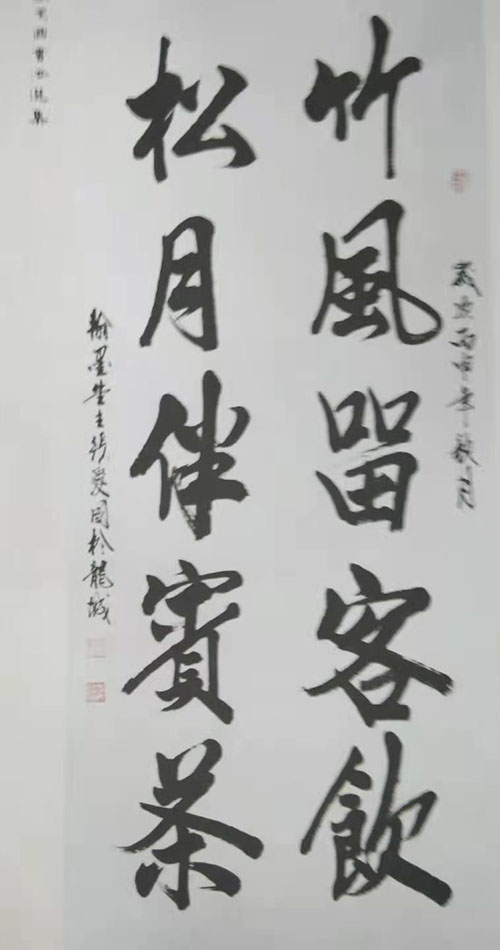 竹風畱客飲
松月伴賓茶
歲次丙申年秋月
翰墨堂主張愛國於龍城